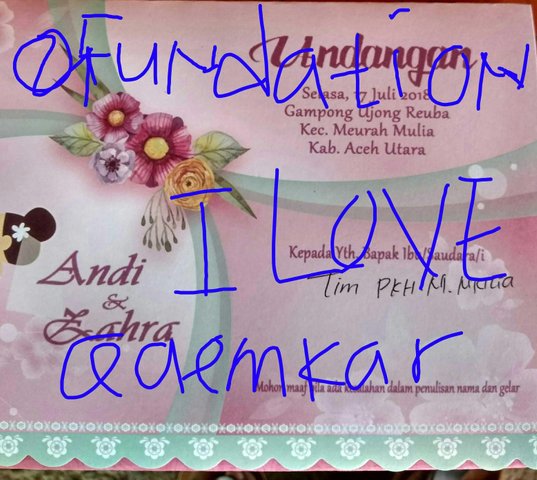 @Fundation
Undangan
Selasa, 17 Juli 2018
Gampong Ujong Reuba
Kec. Meurah Mulia
Kab. Aceh Utara
I LOVE
Kepada Yth. Bapak Ibu/Saudara/i
Tim PKH M. Mulia
Andi
&
Zahra
Qaemkar
Mohon maaf bila ada kesalahan dalam penulisan nama dan gelar